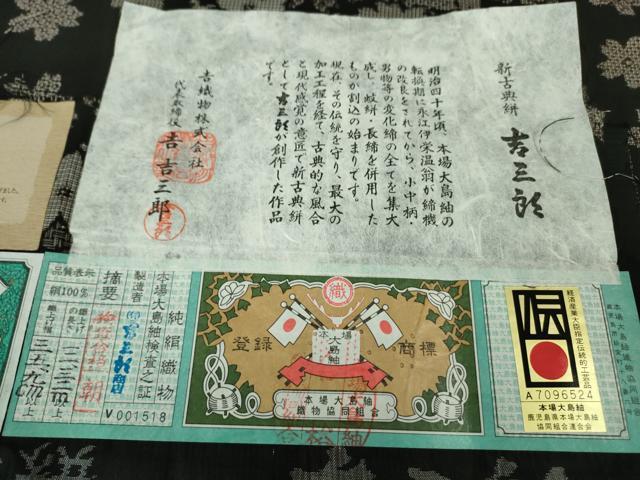 新古典絣
吉三郎
明治四十年頃、本場大島紬の
転換期に永江伊栄温翁が締機
の改良をされてから、小中柄・
男物等の変化締の全てを集大
成し、蚊絣・長締を併用した
ものが割込の始まりです。
現在、その伝統を守り、最大の
加工工程を経て、古典的な風合
と現代感覚の意匠で新古典絣
として吉三郎が創作した作品
です。
吉織物株式会社
代表取締役
吉 吉三郎
純絹織物
本場大島紬検査之証
製造者
摘要
品質表示
絹100%
V001518
登録
商標
本場
大島紬
本場大島紬
織物協同組合
経済産業大臣指定伝統的工芸品
A7096524
本場大島紬
鹿児島県本場大島紬
協同組合連合会